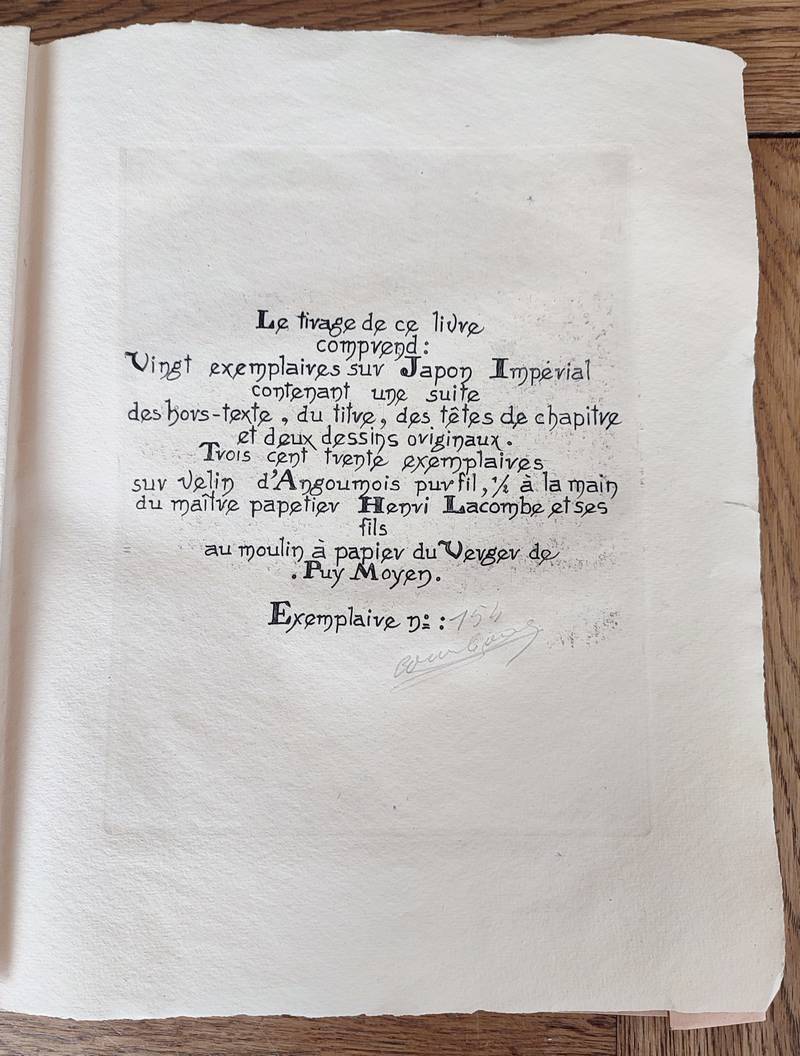 Le tirage de ce livre
comprend :
Vingt exemplaires sur Japon Impérial
contenant une suite
des hors-texte, du titre, des têtes de chapitre
et deux dessins originaux.
Trois cent trente exemplaires
sur velin d'Angoumois pur fil, 1/2 à la main
du maître papetier Henri Lacombe et ses
fils
au moulin à papier du Verger de
. Puy Moyen.
Exemplaire no : 154